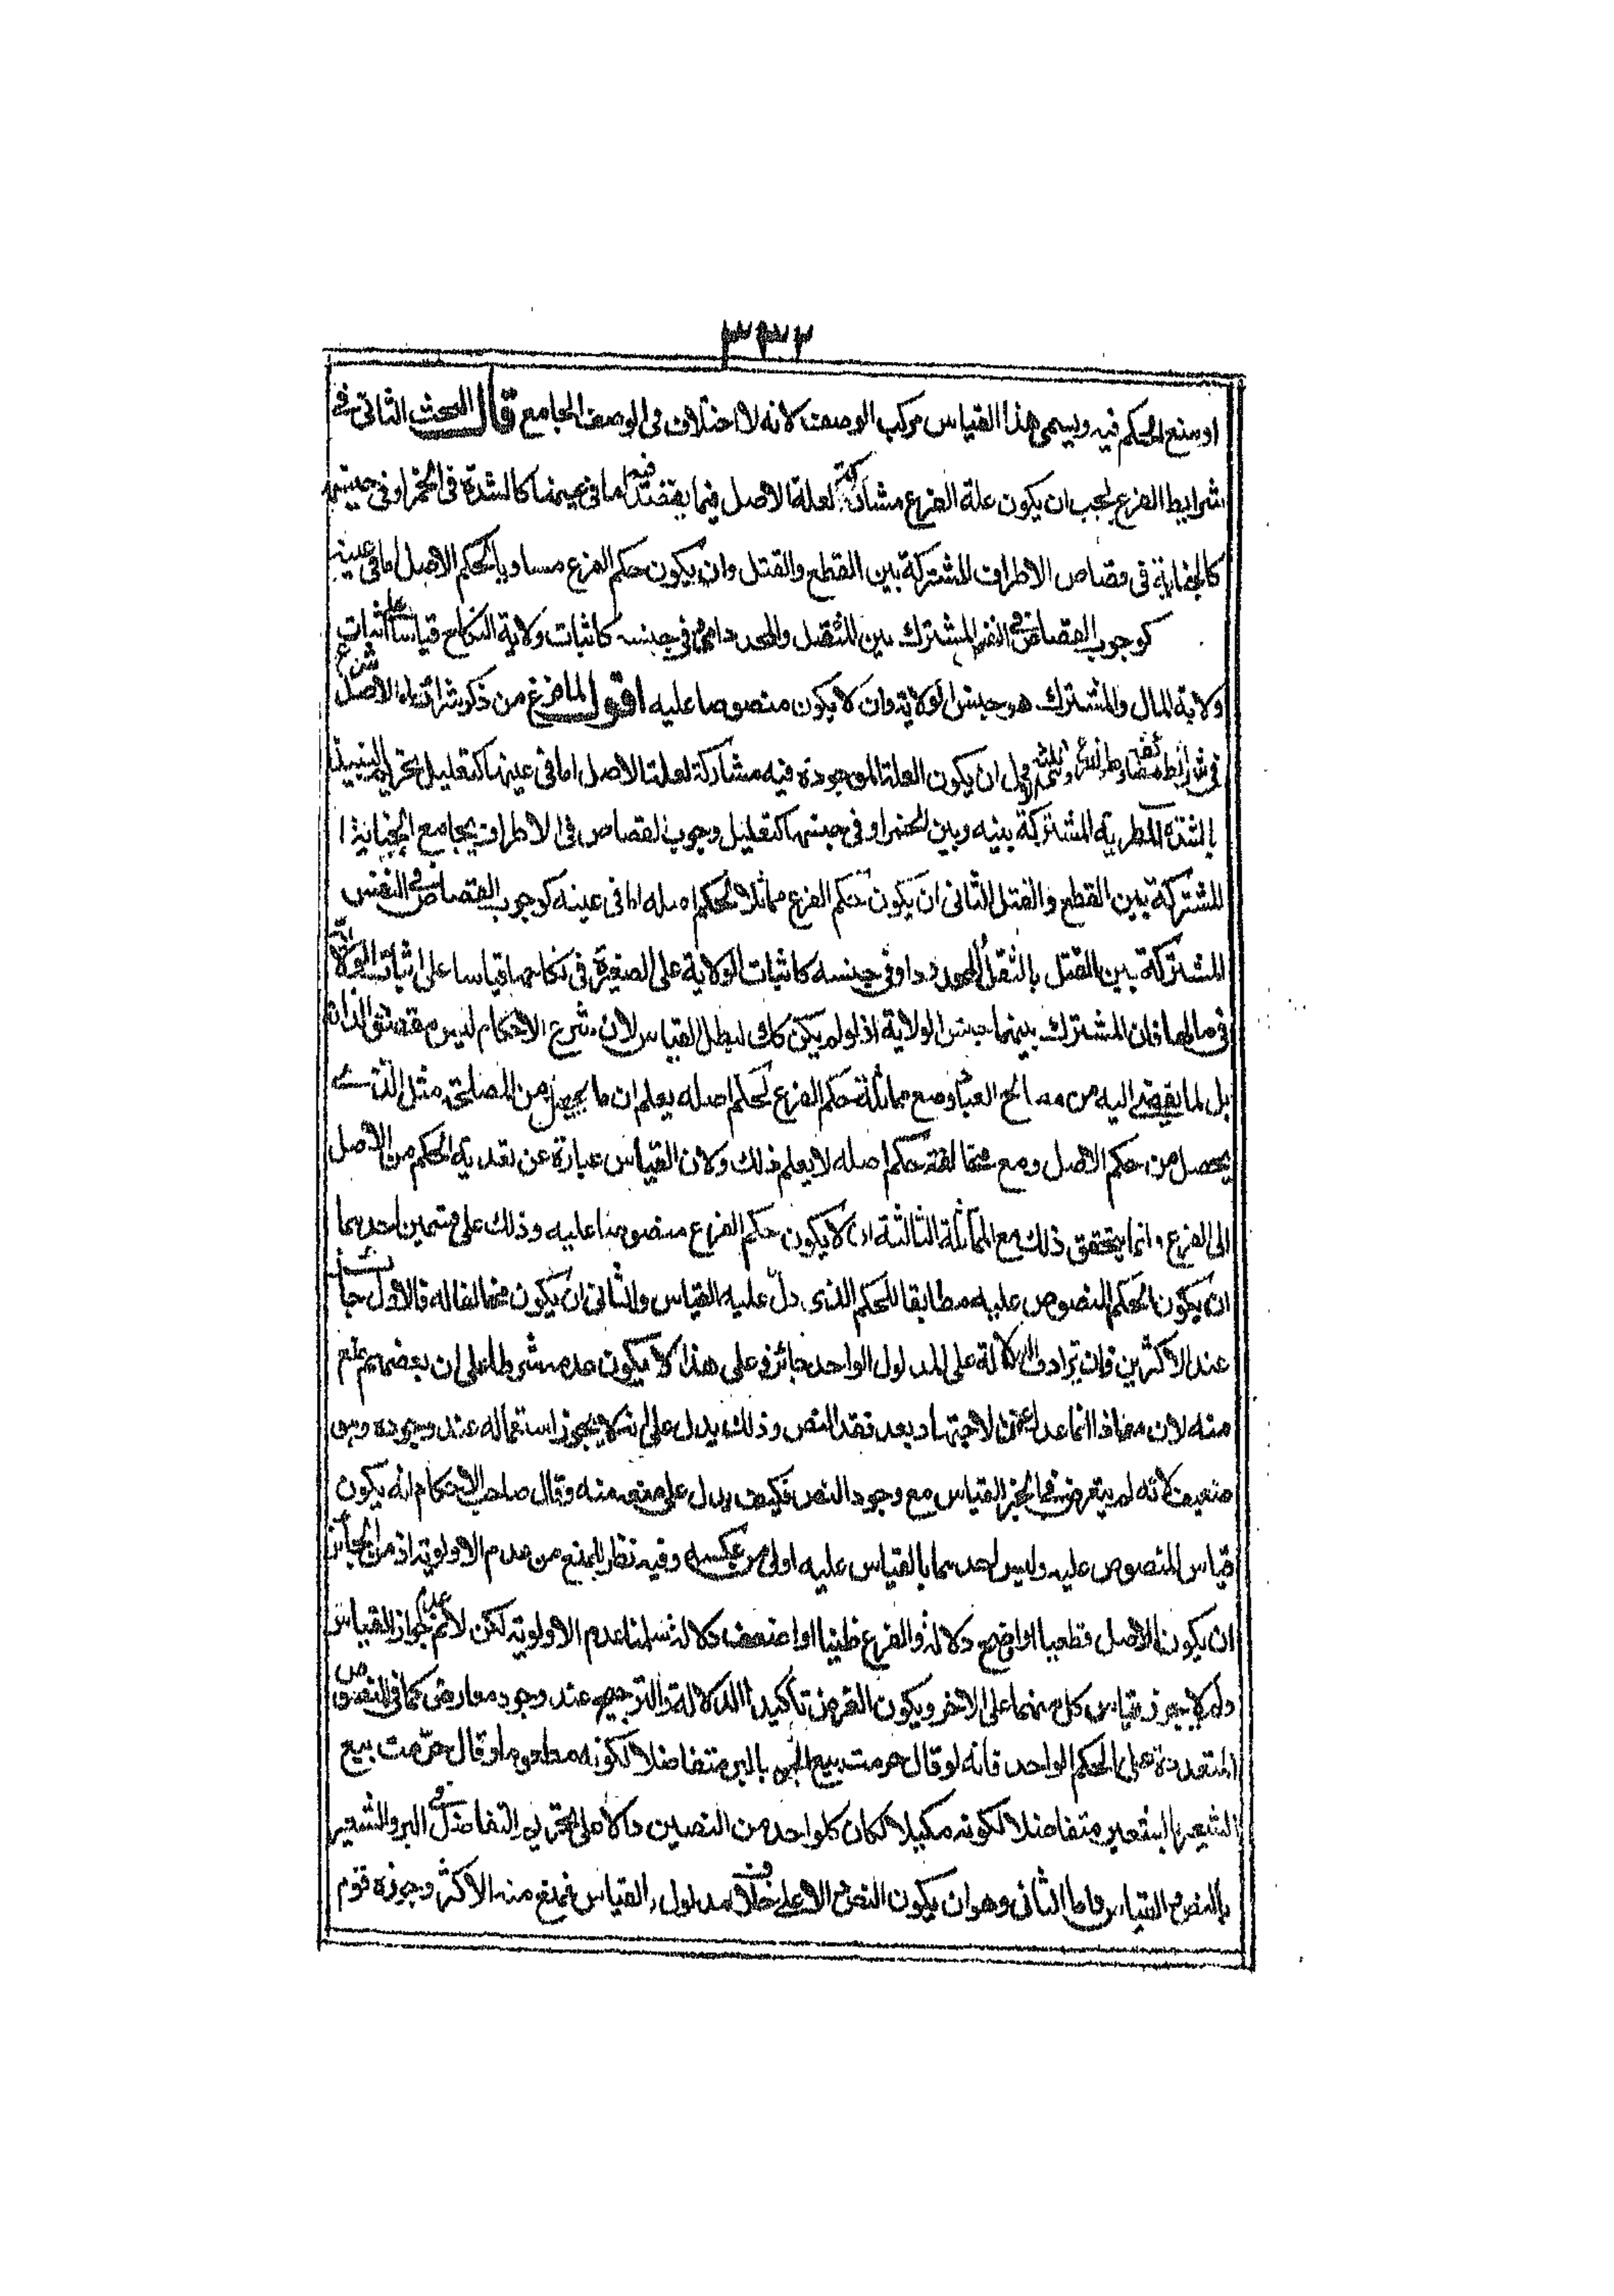 ٣٣٢
او منع الحكم فيه ويسمى هذا القياس مركب الوصف لانه لا اختلاف فى الوصف الجامع قال البحث الثانى فى
شرايط الفرع يجب ان يكون علة الفرع مشاركة لعلة الاصل فيما يقتضيه اما فى عينها كالشدة فى الخمر او فى جنسها
كالجناية فى قصاص الاطراف المشتركة بين القطع والقتل وان يكون حكم الفرع مساويا لحكم الاصل اما فى عينه
كوجوب القصاص فى النفس المشترك بين المثقل والمحدد او فى جنسه كاثبات ولاية النكاح قياسا على اثبات
ولاية المال والمشترك هو جنس الولاية وان لا يكون منصوصا عليه اقول لما فرغ من ذكر شرائط الاصل شرع
فى شرائط الفرع ان يكون العلة الموجودة فيه مشاركة لعلة الاصل اما فى عينها كتعليل تحريم النبيذ
بالشدة المطربة المشتركة بينه وبين الخمر او فى جنسها كتعليل وجوب القصاص فى الاطراف بجامع الجناية
المشتركة بين القطع والقتل الثانى ان يكون حكم الفرع مماثلا لحكم اصله اما فى عينه كوجوب القصاص فى النفس
المشتركة بين القتل بالمثقل والمحدد او فى جنسه كاثبات الولاية على الصغيرة فى نكاحها قياسا على اثبات الولاية
فى مالها فان المشترك بينهما جنس الولاية اذ لو لم يكن كذلك لبطل القياس لان شرع الاحكام ليس مقصودا لذاته
بل لما يفضى اليه من مصالح العباد ومع مماثلة حكم الفرع لحكم اصله يعلم ان ما يحصل من المصلحة مثل الذى
يحصل من حكم الاصل ومع مخالفة حكم اصله لا يعلم ذلك ولان القياس عبارة عن تعدية الحكم من الاصل
الى الفرع وانما يتحقق ذلك مع المماثلة الثالثة ان لا يكون حكم الفرع منصوصا عليه وذلك على قسمين احدهما
ان يكون الحكم المنصوص عليه مطابقا للحكم الذى دل عليه القياس والثانى ان يكون مخالفا له فالاول جائز
عند الاكثرين فان ترادف الادلة على المدلول الواحد جائز وعلى هذا لا يكون عدمه شرطا على ان بعضهم منع
منه لان معاذا انما عدل الى الاجتهاد بعد فقد النص وذلك يدل على انه لا يجوز استعماله عند وجوده وهو
ضعيف لانه لم يتعرض فى الخبر القياس مع وجود النص فكيف يدل على منعه منه وقال صاحب الاحكام انه يكون
قياس المنصوص عليه وليس احدهما بالقياس عليه اولى من عكسه وفيه نظر للمنع من عدم الاولوية اذ من الجائز
ان يكون الاصل قطعيا او اوضح دلالة والفرع ظنيا او اضعف دلالة سلمنا عدم الاولوية لكن لا نم عدم جواز القياس
ولم لا يجوز قياس كل منهما على الاخر ويكون الغرض تاكيد الدلالة والترجيح عند وجود معارض كما فى النصوص
المتعددة على الحكم الواحد فانه لو قال حرمت بيع البر بالبر متفاضلا لكونه مطعوما وقال حرمت بيع
الشعير بالشعير متفاضلا لكونه مكيلا لكان كل واحد من النصين دالا على تحريم التفاضل فى البر والشعير
بالنص والقياس واما الثانى وهو ان يكون النص دالا على خلاف مدلول القياس فمنع منه الاكثر وجوزه قوم